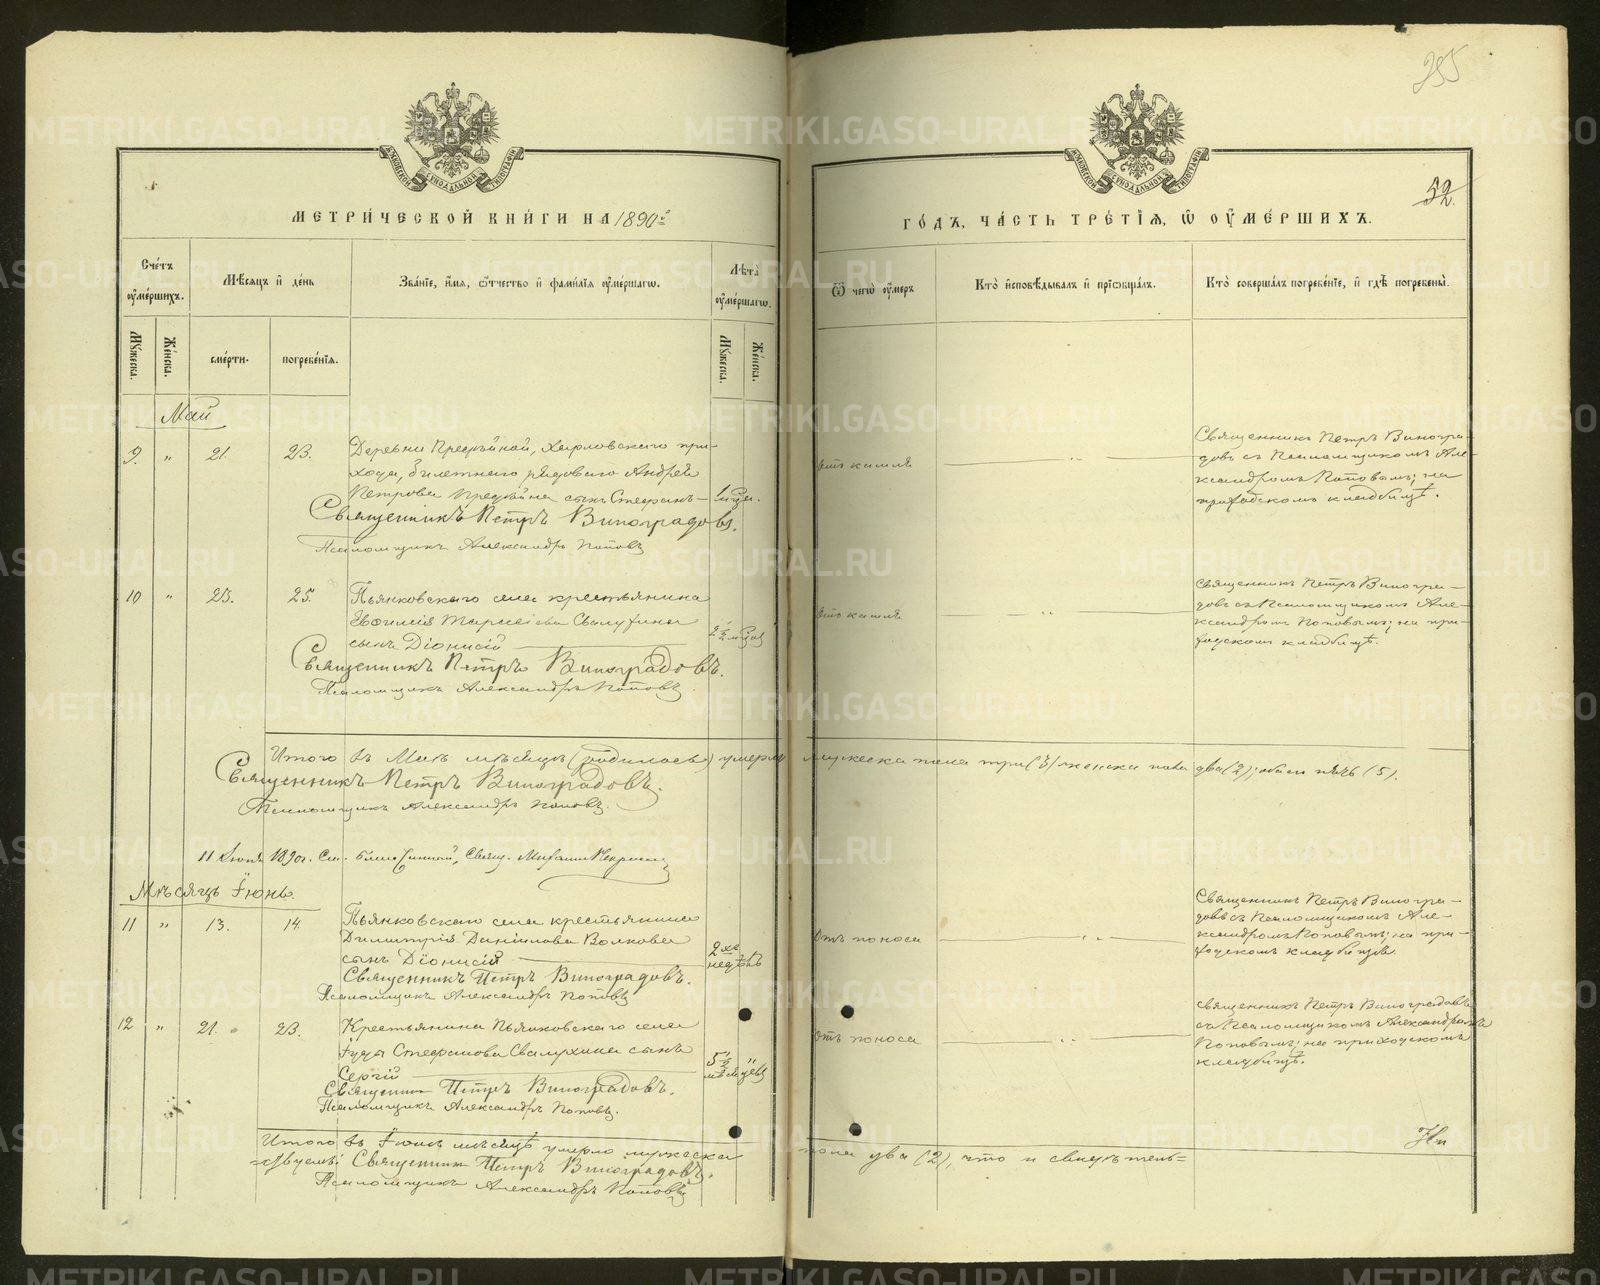 255
52.
МЕТРИ́ЧЕСКОЙ КНИ́ГИ НА 1890й
ГО́ДЪ, ЧА́СТЬ ТРЕ́ТІЯ, Ѿ ОУМЕ́РШИХЪ.
Сче́тъ оуме́ршихъ.
Мѣ́сяцъ и де́нь
Зва́ніе, и́мя, ѻ́тчество и фами́лія оуме́ршагѡ.
Лѣ́та оуме́ршагѡ.
Ѿ чегѡ̀ оу́меръ
Кто̀ и҆сповѣ́дывалъ и прїѡбща́лъ.
Кто̀ соверша́лъ погребе́ніе, и гдѣ̀ погребены̀.
Му́жеска.
Же́нска.
сме́рти.
погребе́нія.
Му́жеска.
Же́нска.
Май
9. " 21. 23.
Деревни
прихода, билетнаго рядоваго Андрея
Петрова сынъ Стефанъ –
Священникъ Петръ Виноградовъ.
Псаломщикъ Александръ Поповъ
отъ кашля
Священникъ Петръ Виногра-
довъ съ Псаломщикомъ Але-
ксандромъ Поповымъ; на
приходскомъ кладбищѣ.
10 " 23. 25.
Пьянковскаго села крестьянина
сынъ Діонисій
2 1/2
Священникъ Петръ Виноградовъ.
Псаломщикъ Александръ Поповъ
отъ кашля
Священникъ Петръ Виногра-
довъ съ Псаломщикомъ Але-
ксандромъ Поповымъ; на при-
ходскомъ кладбищѣ.
Итого въ Маѣ мѣсяцѣ (родилось) умерло мужеска пола три (3) женска пола два (2); обоего пять (5).
Священникъ Петръ Виноградовъ.
Псаломщикъ Александръ Поповъ.
11 Іюня 1890г. Свящ.
Мѣсяцъ Іюнь.
11 " 13. 14.
Пьянковскаго села крестьянина
Димитрія Даніилова Волкова
сынъ Діонисій
2хъ недѣль
Священникъ Петръ Виноградовъ.
Псаломщикъ Александръ Поповъ
Отъ поноса
Священникъ Петръ Виногра-
довъ съ Псаломщикомъ Але-
ксандромъ Поповымъ; на при-
ходскомъ кладбищѣ.
12 " 21. 23.
Крестьянина Пьянковскаго села
Іуды Стефанова Свалухина сынъ
Сергій
5 1/2 мѣсяцевъ "
Священникъ Петръ Виноградовъ.
Псаломщикъ Александръ Поповъ.
Отъ поноса
Священникъ Петръ Виноградовъ
съ Псаломщикомъ Александромъ
Поповымъ; на приходскомъ
кладбищѣ.
Итого въ Іюнѣ мѣсяцѣ умерло мужеска пола два (2), что и свидѣтель=
=ствуемъ: Священникъ Петръ Виноградовъ.
Псаломщикъ Александръ Поповъ
METRIKI.GASO-URAL.RU